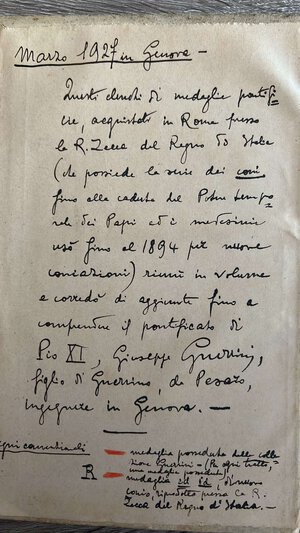 Marzo 1927 in Genova –
Questi elenchi di medaglie pontifi-
cie, acquistati in Roma presso
la R. Zecca del Regno d'Italia
(che possiede la serie dei coni
fino alla caduta del Potere tempo-
rale dei Papi ed i medesimi
usò fino al 1894 per nuove
coniazioni) riunì in volume
e corredò di aggiunte fino a
comprendere il pontificato di
Pio XI, Giuseppe Guerrini,
figlio di Guerrino, da Pesaro,
ingegnere in Genova. –
Segni convenzionali
– medaglie possedute dalla colle-
zione Guerrini – (Per ogni tratto,
una medaglia posseduta)
R – medaglia id id, di nuovo
conio, riprodotta presso la R.
Zecca del Regno d'Italia. –